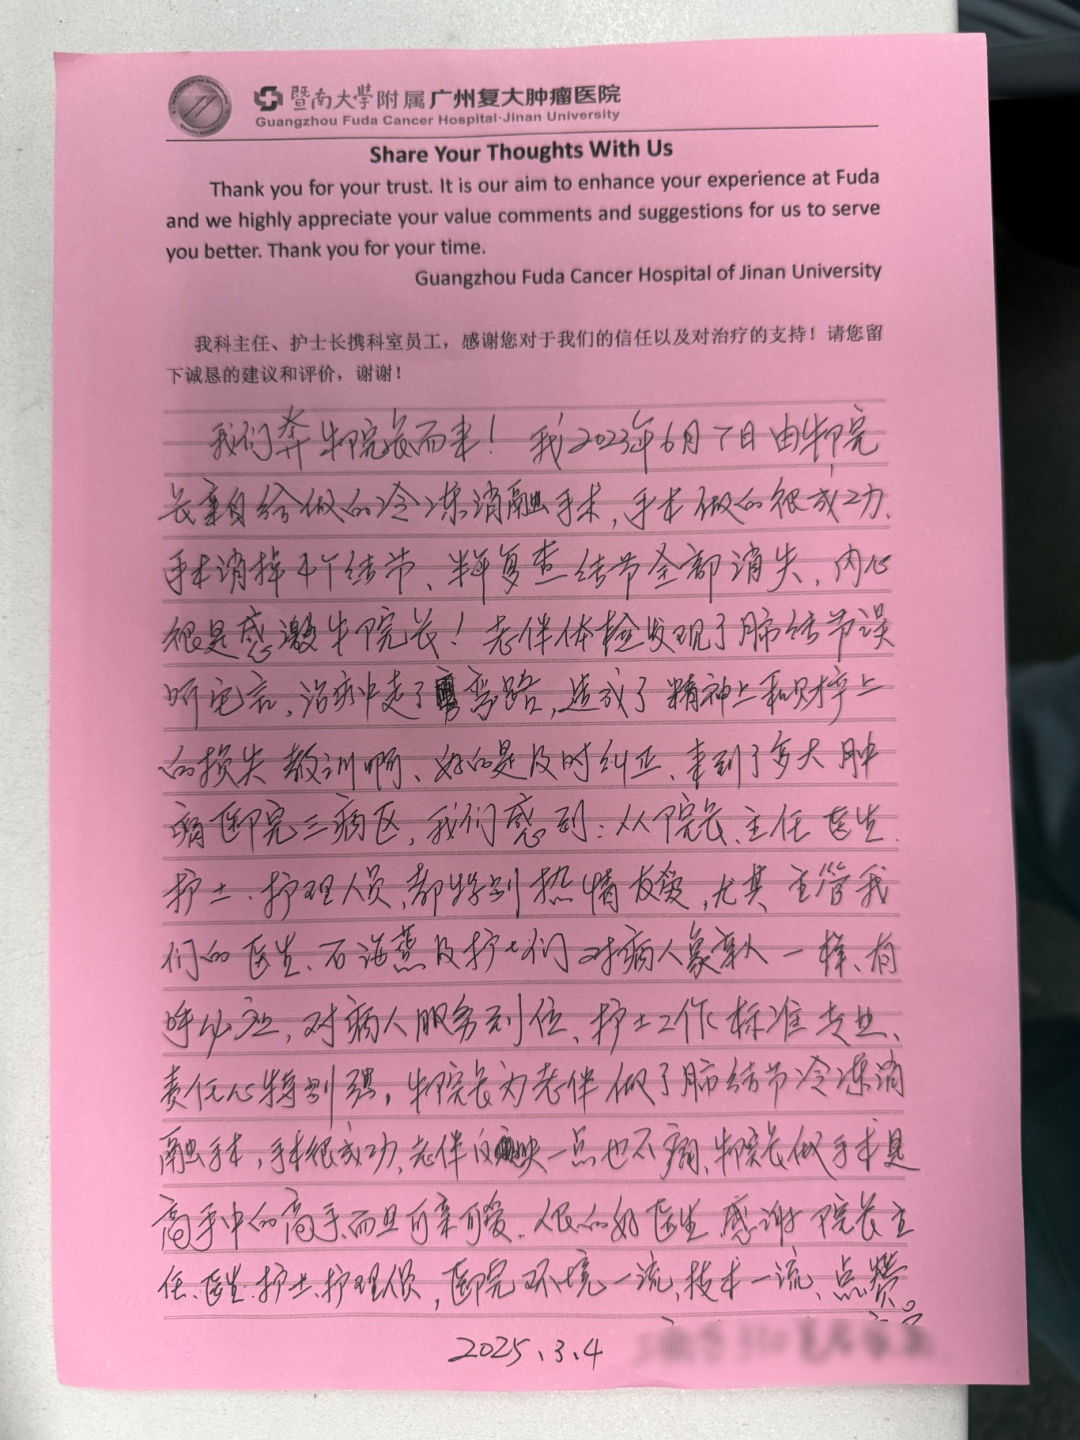 暨南大学附属广州复大肿瘤医院
Guangzhou Fuda Cancer Hospital·Jinan University
Share Your Thoughts With Us
Thank you for your trust. It is our aim to enhance your experience at Fuda
and we highly appreciate your value comments and suggestions for us to serve
you better. Thank you for your time.
Guangzhou Fuda Cancer Hospital of Jinan University
我科主任、护士长携科室员工，感谢您对于我们的信任以及对治疗的支持！请您留
下诚恳的建议和评价，谢谢！
我们奔牛院长而来！我2023年6月7日由牛院
长亲自给做的冷冻消融手术，手术做的很成功、
手术消掉4个结节、半年复查结节全部消失、内心
很是感激牛院长！老伴体检发现了肺结节误
听宅言，治病中走了弯路，造成了精神上和财产上
的损失教训啊、好的是及时纠正、来到了复大肿
瘤医院三病区，我们感到：从院长、主任医生、
护士、护理人员、都特别热情友爱，尤其主管我
们的医生、石海燕及护士们对病人象亲人一样、有
呼必应，对病人服务到位、护士工作标准专业、
责任心特别强，牛院长为老伴做了肺结节冷冻消
融手术，手术很成功、老伴一点也不痛、牛院长做手术是
高手中的高手、而且可亲可爱、人民的好医生感谢院长主
任、医生、护士、护理人员，医院环境一流、技术一流、点赞。
2025.3.4